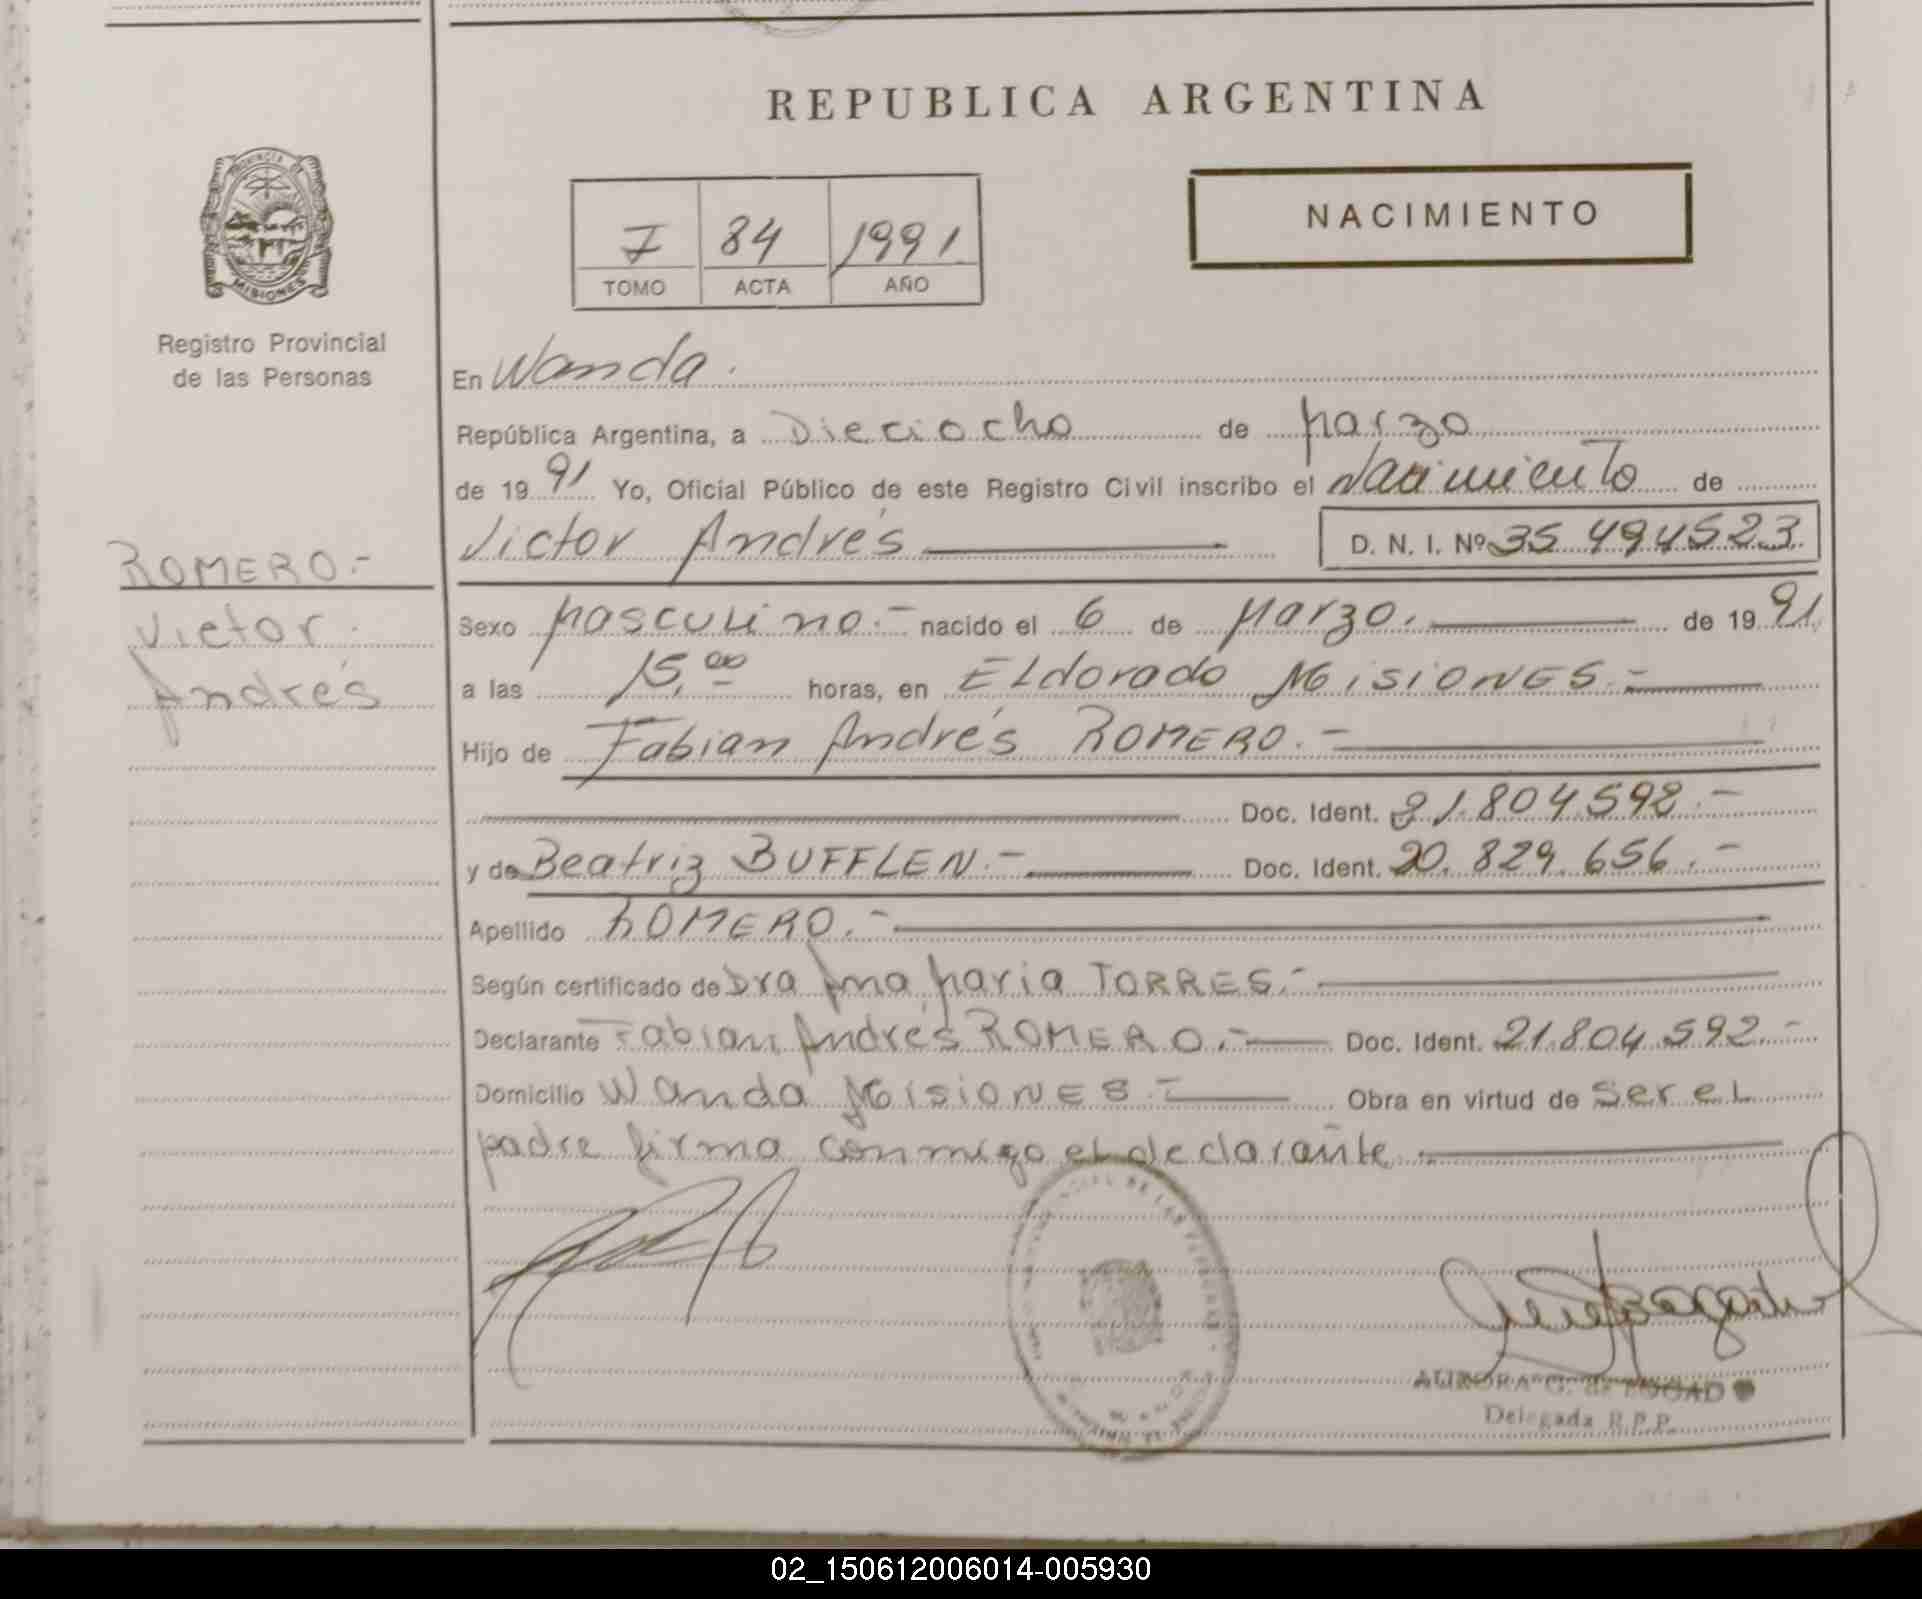 REPUBLICA ARGENTINA
NACIMIENTO
I 84 1991
TOMO ACTA AÑO
MISIONES
Registro Provincial
de las Personas
ROMERO.-
Victor
Andrés
En Wanda.
República Argentina, a Dieciocho de Marzo
de 1991 Yo, Oficial Público de este Registro Civil inscribo el Nacimiento de
Victor Andrés D. N. I. Nº 35.494523
Sexo Masculino.- nacido el 6 de Marzo. de 1991
a las 15,00 horas, en ELdorado MISIONES.-
Hijo de Fabian Andrés ROMERO.-
Doc. Ident. 21.804.592.-
y de Beatriz BUFFLEN.- Doc. Ident. 20.829.656.-
Apellido ROMERO.-
Según certificado de Dra Ana Maria TORRES.-
Declarante Fabian Andrés ROMERO.- Doc. Ident. 21.804.592.-
Domicilio Wanda MISIONES.- Obra en virtud de Ser eL
padre firma conmigo el declarante
AURORA G. de
Delegada R.P.P.
02_150612006014-005930